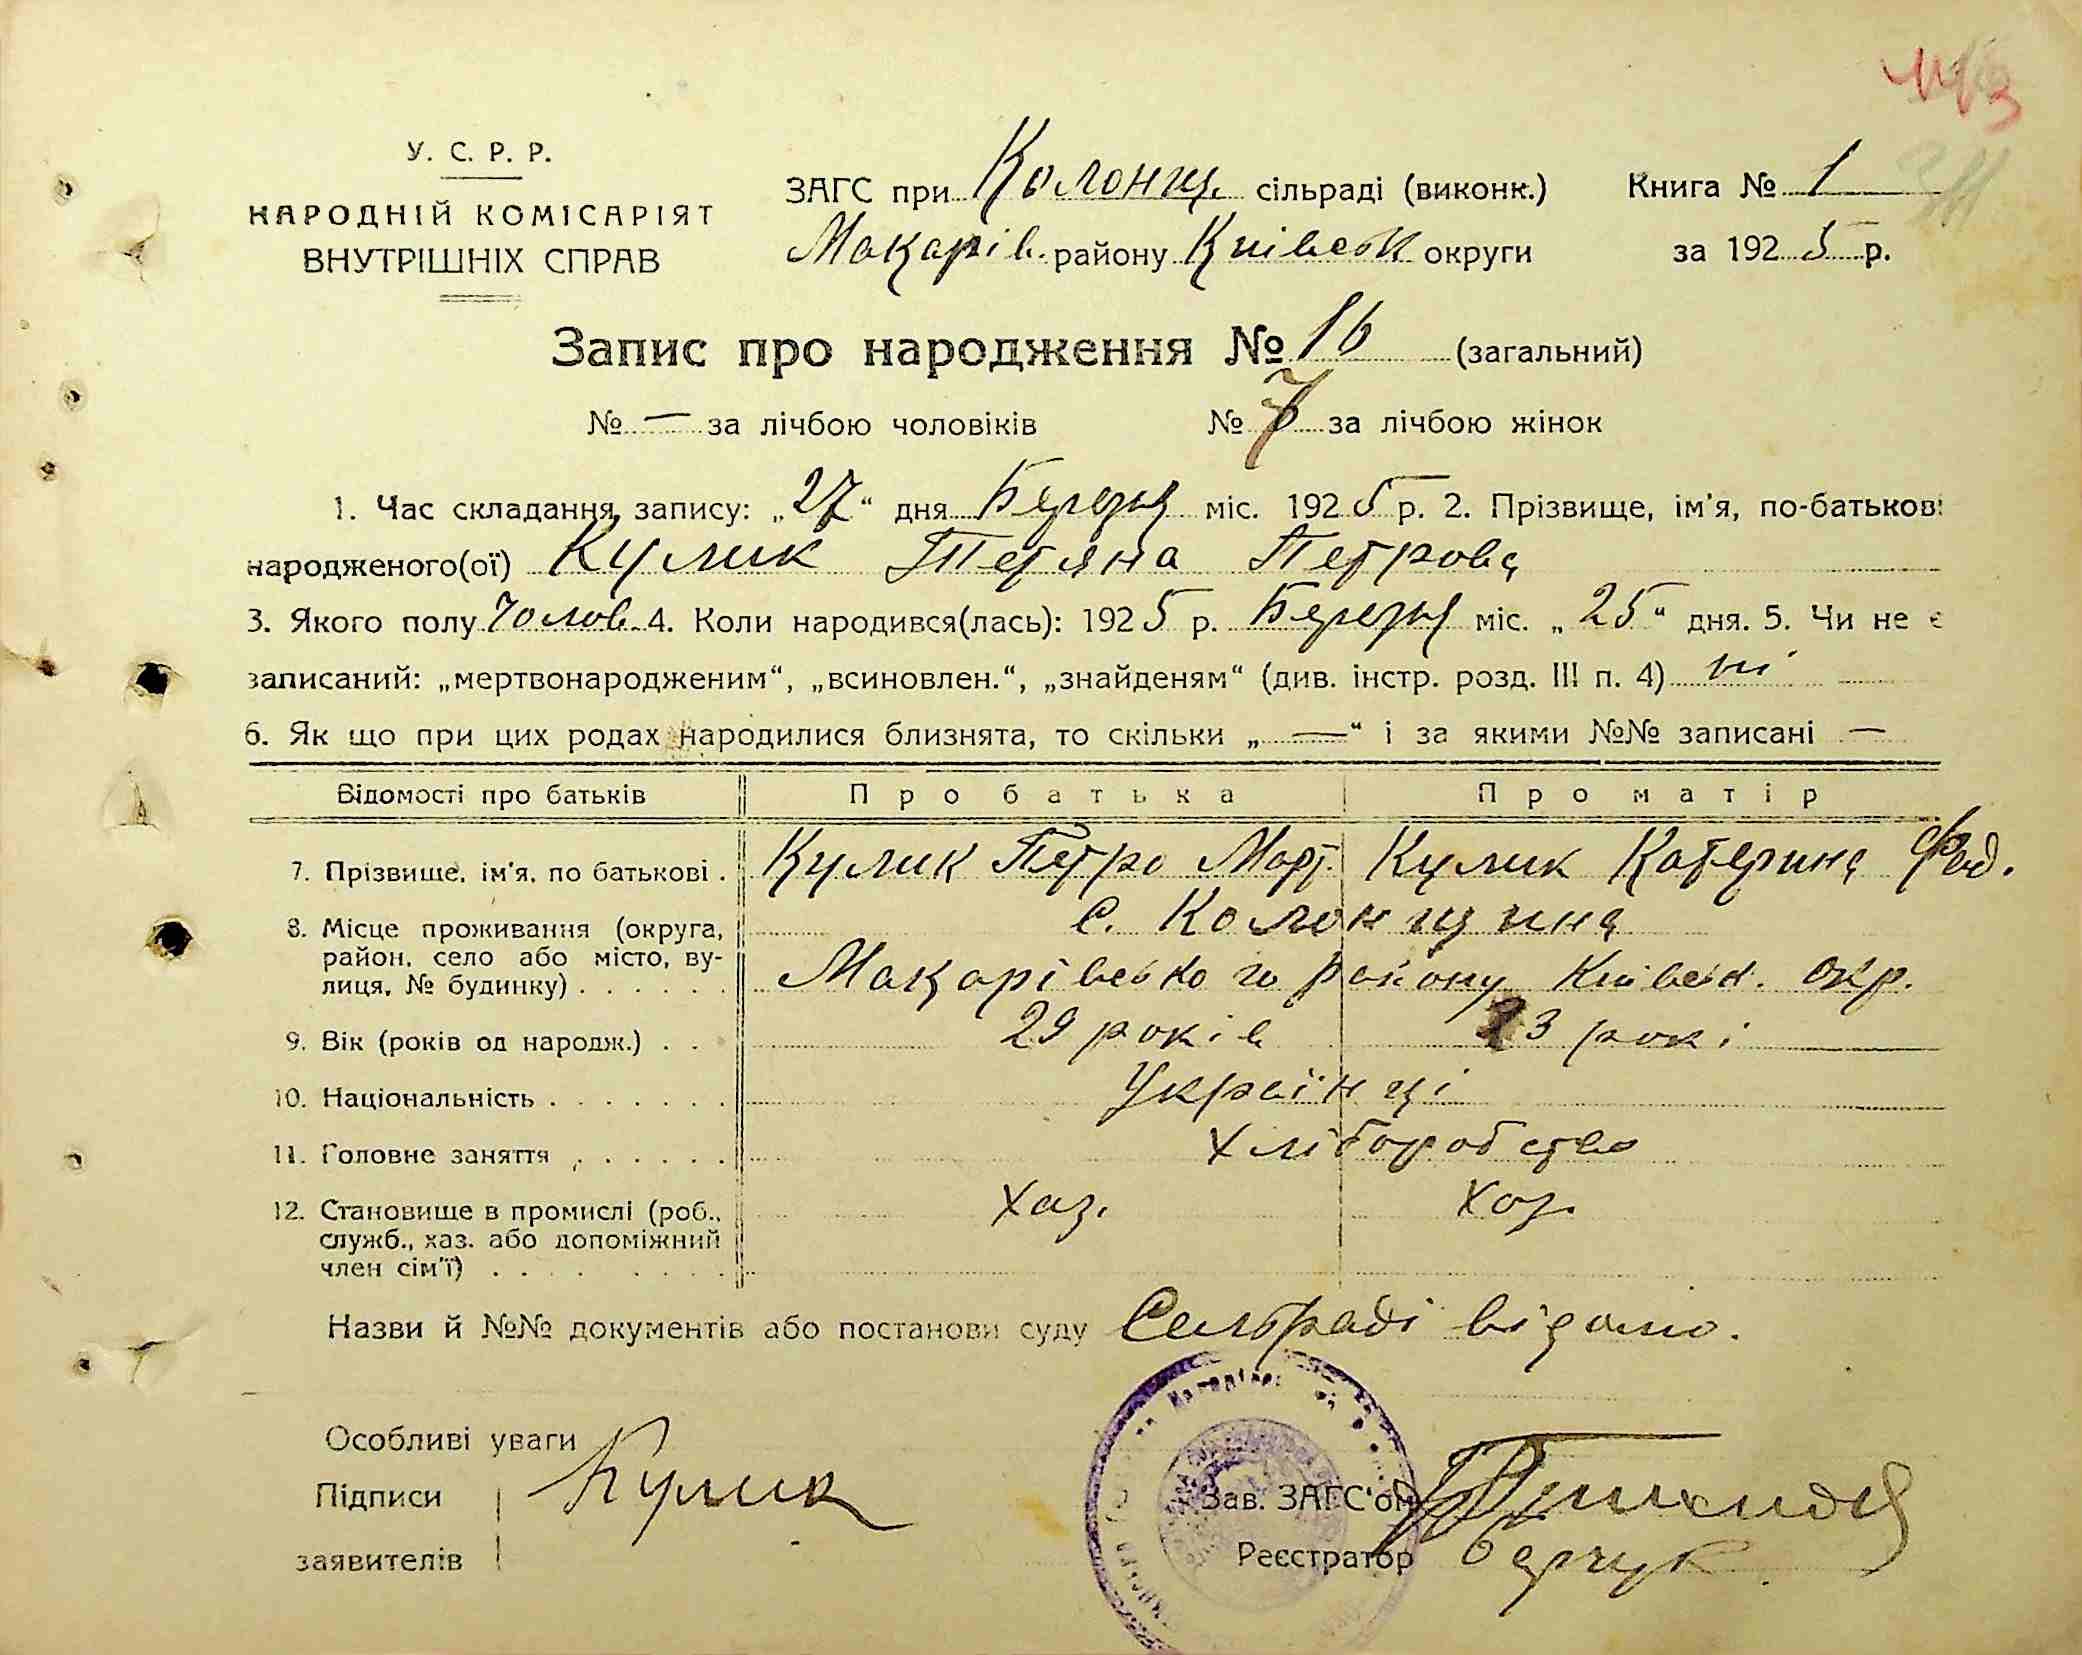 У. С. Р. Р.
НАРОДНІЙ КОМІСАРІЯТ
ВНУТРІШНІХ СПРАВ
ЗАГС при Колонщ. сільраді (виконк.)
Макарів. району Київськ округи
Книга № 1
за 1925 р.
Запис про народження № 16 (загальний)
№ — за лічбою чоловіків № 7 за лічбою жінок
1. Час складання запису: „27“ дня Березня міс. 1925 р. 2. Прізвище, ім'я, по-батькові
народженого(ої) Кулик Тетяна Петрова
3. Якого полу Чолов. 4. Коли народився(лась): 1925 р. Березня міс. „25“ дня. 5. Чи не є
записаний: „мертвонародженим“, „всиновлен.“, „знайденям“ (див. інстр. розд. III п. 4) ні
6. Як що при цих родах народилися близнята, то скільки „—“ і за якими №№ записані —
Відомості про батьків Про батька Про матір
7. Прізвище, ім'я, по батькові . Кулик Петро Март. Кулик Катерина Фед.
8. Місце проживання (округа, с. Колонщина
район, село або місто, ву-
лиця, № будинку) . . . . . . Макарівського району Київськ. окр.
9. Вік (років од народж.) . . 29 років 23 рокі
10. Національність . . . . . . . Українці
11. Головне заняття . . . . . . Хліборобство
12. Становище в промислі (роб., Хаз. Хаз.
служб., хаз. або допоміжний
член сім'ї) . . . . . . . .
Назви й №№ документів або постанови суду Сельраді відомо.
Особливі уваги
Підписи Кулик Зав. ЗАГС'ом
заявителів Реєстратор